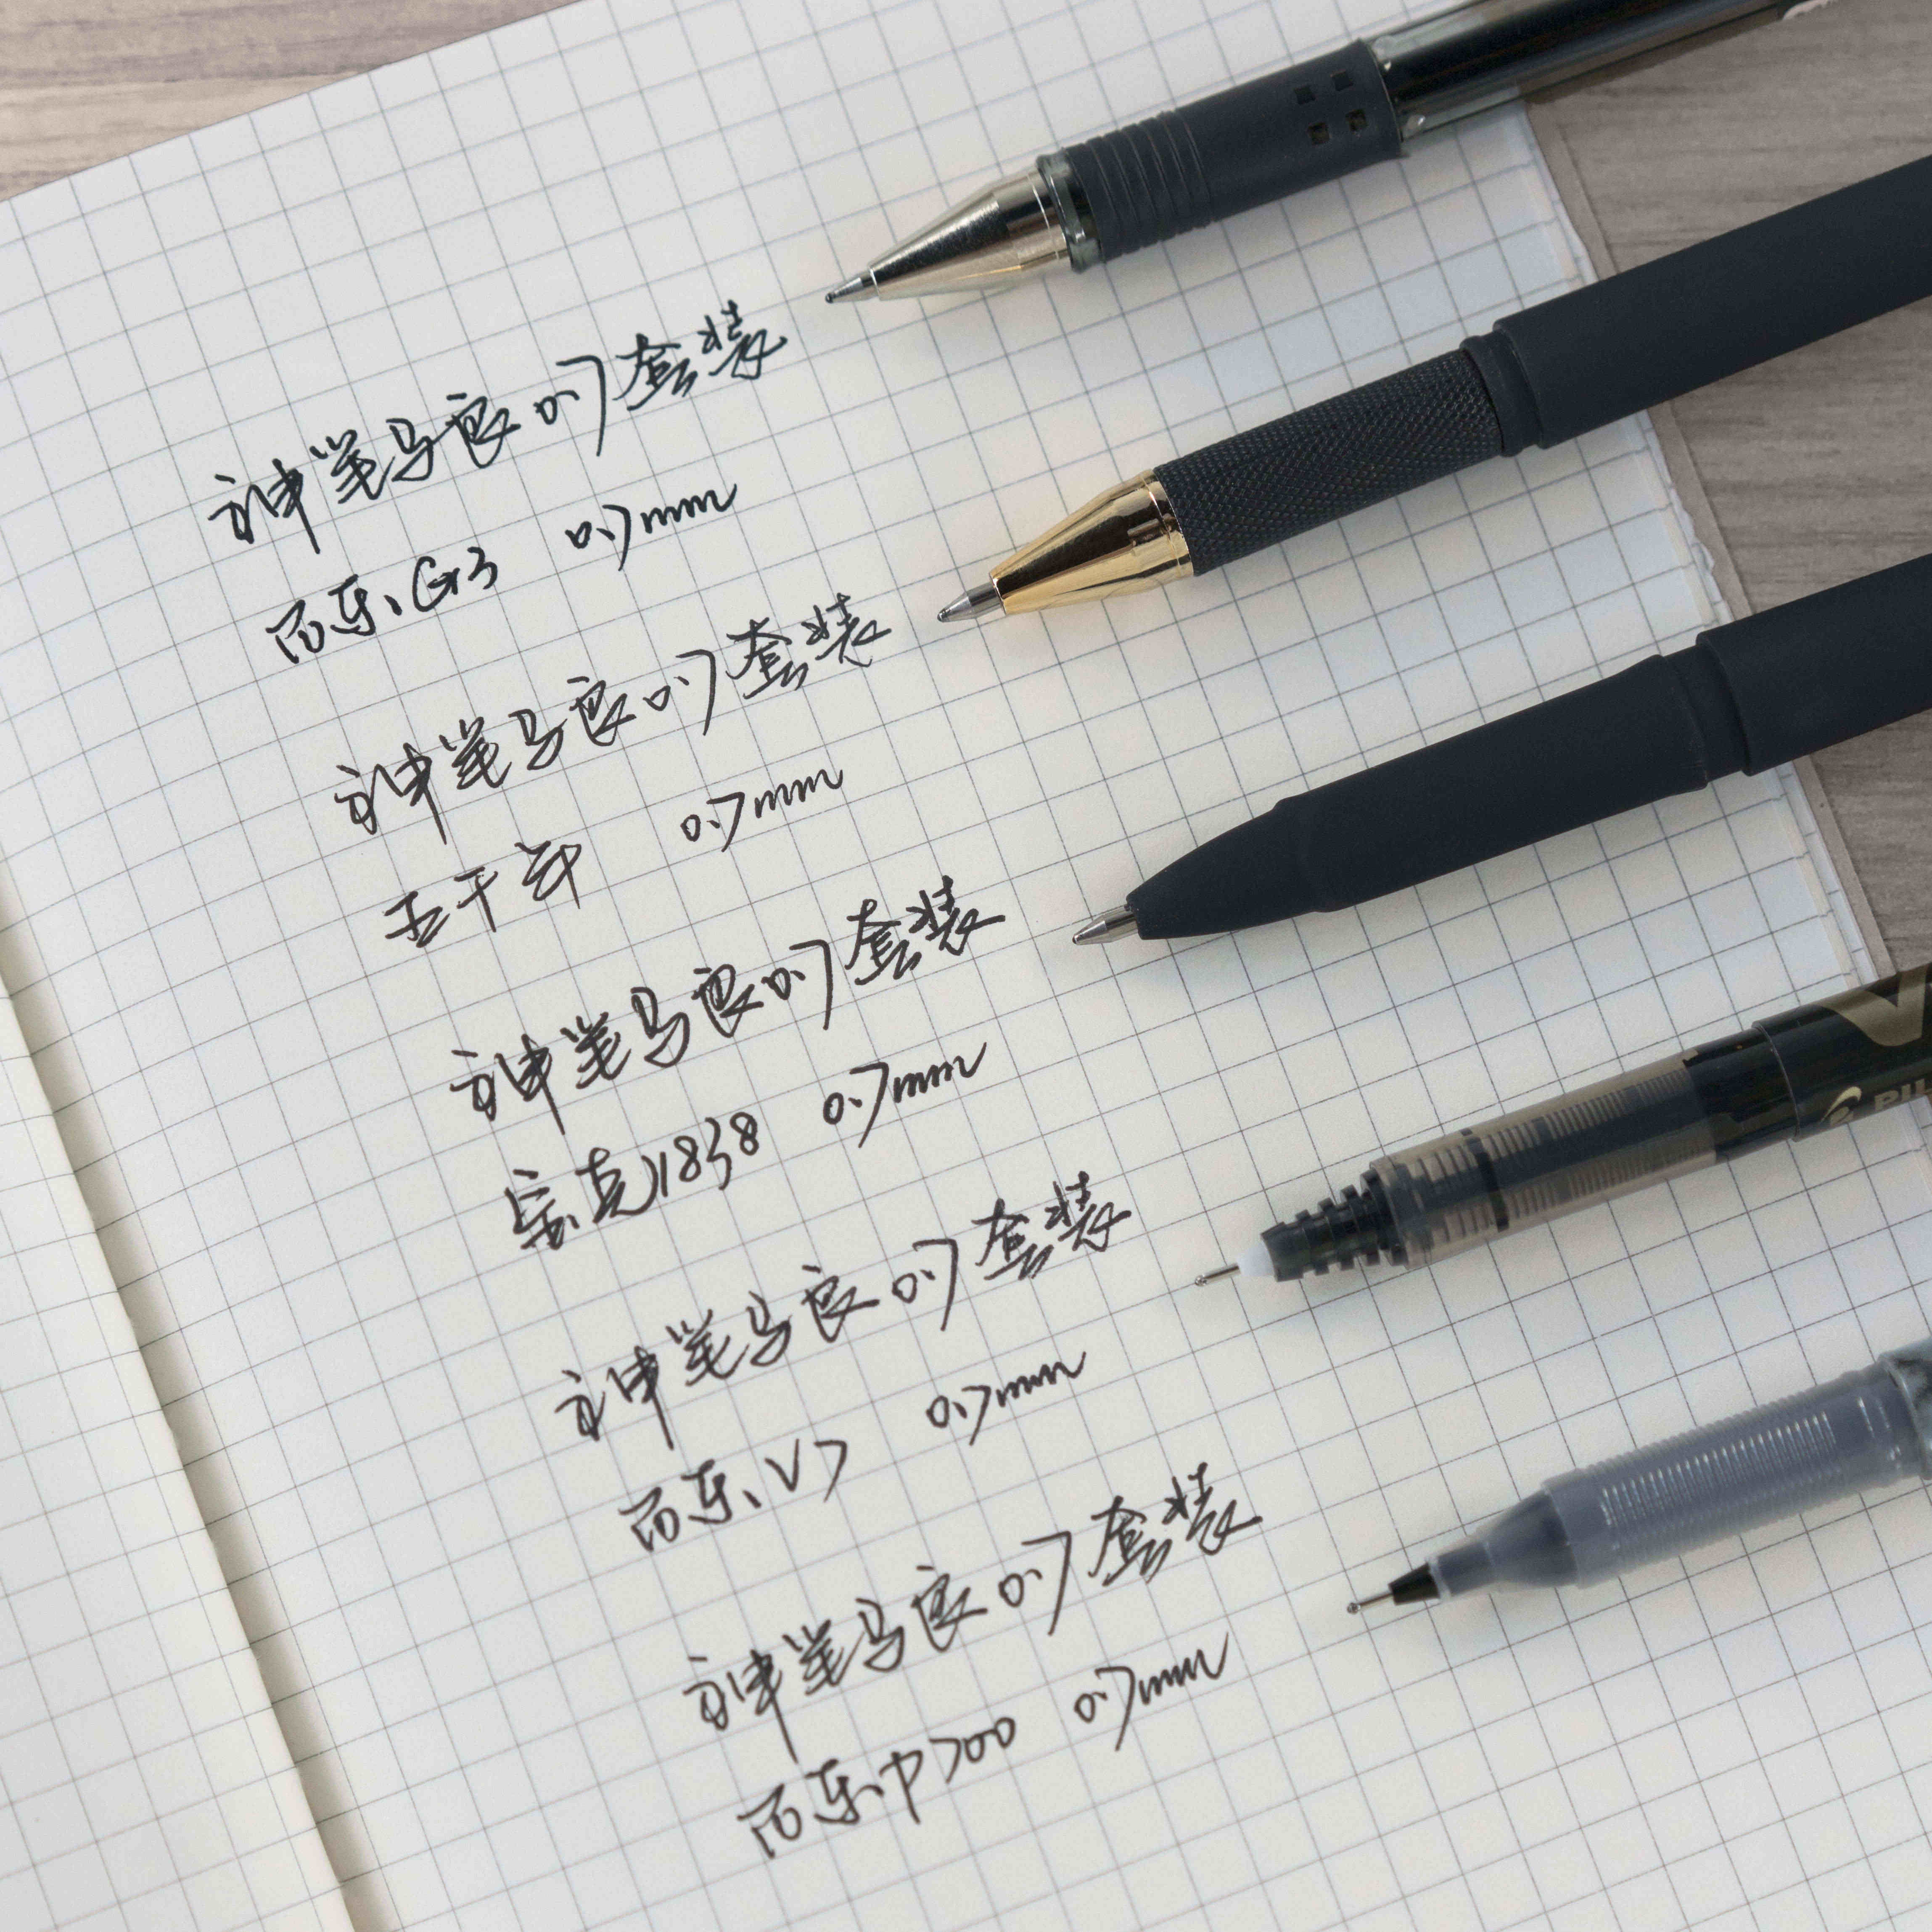 神笔马良的套装
百乐G3 0.7mm
神笔马良的套装
五千年 0.7mm
神笔马良的套装
宝克1838 0.7mm
神笔马良的套装
百乐V7 0.7mm
神笔马良的套装
百乐P700 0.7mm
V